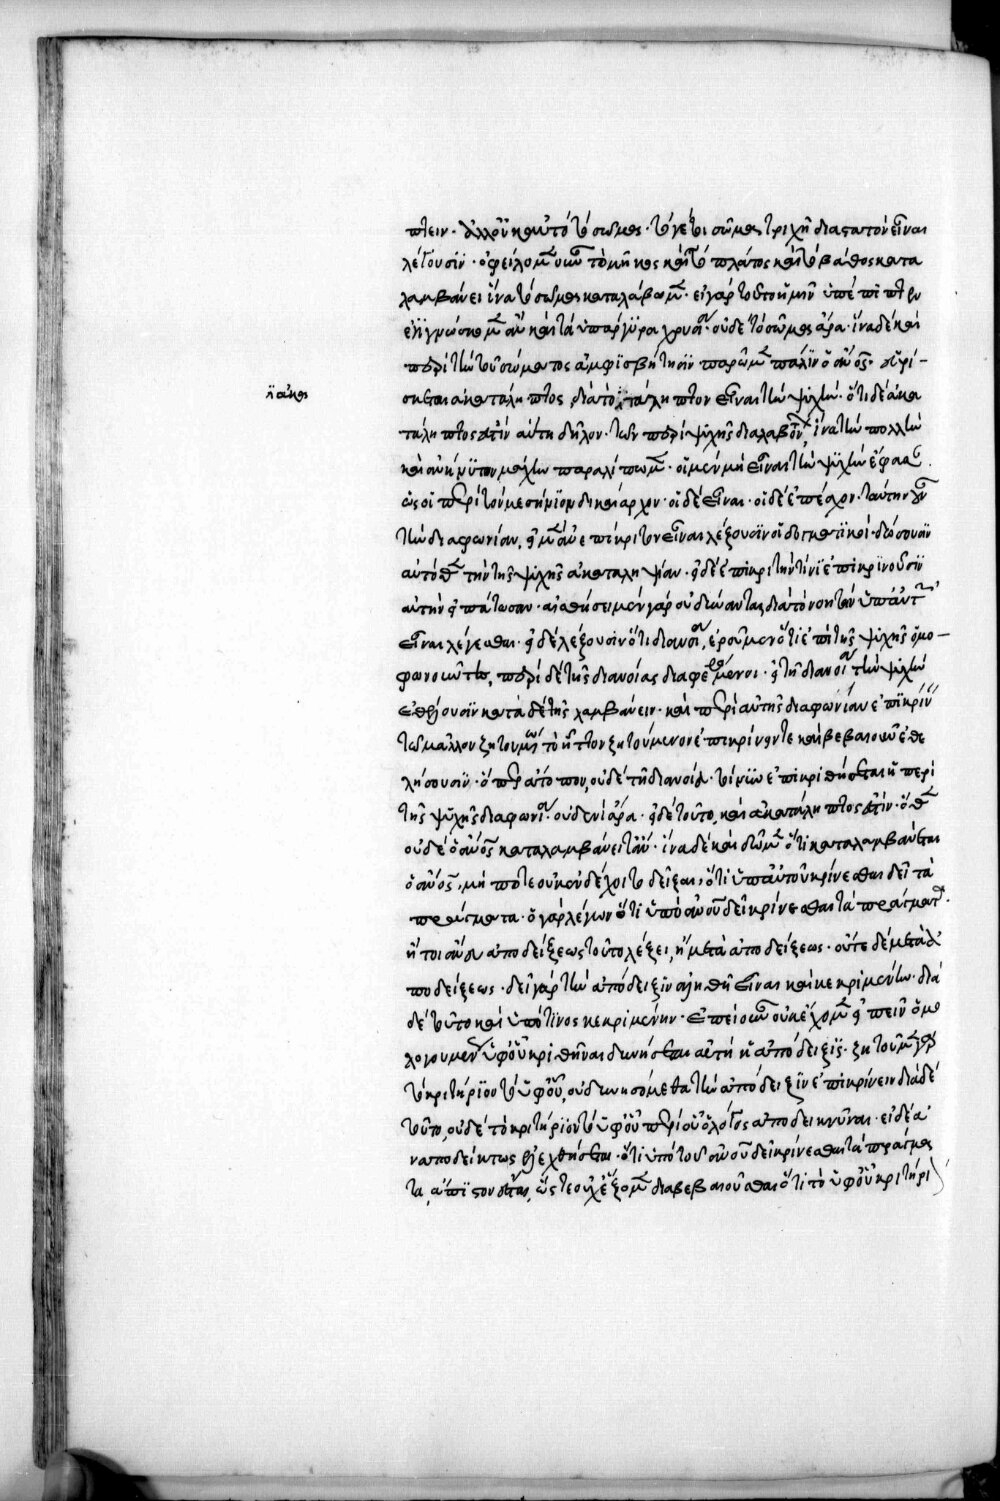 πτειν· ἀλλ' οὐδὲ αὐτὸ τὸ σῶμα· τό γέ τοι σῶμα τριχῆ διαστατὸν εἶναι
λέγουσιν· ὀφείλομεν οὖν τὸ μῆκος καὶ τὸ πλάτος καὶ τὸ βάθος κατα
λαμβάνει ἵνα τὸ σῶμα καταλάβωμεν· εἰ γὰρ τοῦτο ἡμῖν ὑπέπιπτεν
ἐγιγνώσκομεν ἂν καὶ τὰ ὑπάργυρα χρυσία· οὐδὲ τὸ σῶμα ἄρα· ἵνα δὲ καὶ
περὶ τὴν τοῦ σώματος ἀμφισβήτησιν παρῶμεν πάλιν ὁ ἄνθρωπος· εὑρί-
σκεται ἀκατάληπτος, διὰ τὸ κατάληπτον εἶναι τὴν ψυχήν· ὅτι δὲ ἀκα
ἢ ἀκα
τάληπτος ἐστὶν αὕτη δῆλον· τῶν περὶ ψυχῆς διαλαβόντων, ἵνα τὴν πολλὴν
καὶ ἀνήνυτον μάχην παραλίπωμεν· οἱ μὲν μὴ εἶναι τὴν ψυχὴν ἔφασαν.
ὡς οἱ περὶ τὸν μεσήνιον δικαίαρχον· οἱ δὲ εἶναι· οἱ δὲ ἐπέσχον· ταύτην οὖν
τὴν διαφωνίαν, εἰ μὲν ἀνεπίκριτον εἶναι λέξουσιν οἱ δογματικοί· δώσουσιν
αὐτόθεν τὴν τῆς ψυχῆς ἀκαταληψίαν· εἰ δὲ ἐπικριτὴν τίνι ἐπικρινοῦσιν
αὐτὴν εἰπάτωσαν· αἰσθήσει μὲν γὰρ οὐ δύνανται διὰ τὸ νοητὴν ὑπ' αὐτῶν
εἶναι λέγεσθαι· εἰ δὲ λέξουσιν ὅτι διανοίᾳ, ἐροῦμεν ὅτι ἐπὶ τῆς ψυχῆς ὁμο-
φωνοῦντο, περὶ δὲ τῆς διανοίας διαφερόμενοι· εἰ τῇ διανοίᾳ τὴν ψυχὴν
ἐθέλουσιν καταλαμβάνειν· καὶ περὶ αὐτῆς διαφωνίαν ἐπικρίνειν
τῶ μᾶλλον ζητουμένω τὸ ἧττον ζητούμενον ἐπικρίνειν τε καὶ βεβαιοῦν ἐθε
λήσουσιν· ὅπερ ἄτοπον, οὐδὲ τῇ διανοίᾳ· τοίνυν ἐπικριθήσεται ἡ περὶ
τῆς ψυχῆς διαφωνία· οὐδενὶ ἄρα· εἰ δὲ τοῦτο, καὶ ἀκατάληπτος ἐστίν· ὅθεν
οὐδὲ ὁ ἄνθρωπος καταλαμβάνοιτ' ἄν· ἵνα δὲ καὶ δῶμεν ὅτι καταλαμβάνεται
ὁ ἄνθρωπος, μή ποτε οὐκ ἐνδέχοιτο δεῖξαι, ὅτι ὑπ' αὐτοῦ κρίνεσθαι δεῖ τὰ
πράγματα· ὁ γὰρ λέγων ὅτι ὑπὸ ἀνθρώπου δεῖ κρίνεσθαι τὰ πράγματα·
ἤτοι ἄνευ ἀποδείξεως τοῦτο λέξει, ἢ μετὰ ἀποδείξεως· οὔτε δὲ μετὰ ἀ
ποδείξεως· δεῖ γὰρ τὴν ἀπόδειξιν ἀληθῆ εἶναι καὶ κεκριμένην· διὰ
δὲ τοῦτο καὶ ὑπό τινος κεκριμένην· ἐπεὶ οὖν οὐκ ἔχομεν εἰπεῖν ὁμο
λογουμένως ὑφ' οὗ κριθῆναι δυνήσεται αὐτὴ ἡ ἀπόδειξις· ζητοῦμεν γὰρ
τὸ κριτήριον τὸ ὑφ' οὗ, οὐ δυνησόμεθα τὴν ἀπόδειξιν ἐπικρίνειν διὰ δὲ
τοῦτο, οὐδὲ τὸ κριτήριον τὸ ὑφ' οὗ περὶ οὗ ὁ λόγος ἀποδεικνύναι· εἰ δὲ ἀ
ναποδείκτως λεχθήσεται· ὅτι ὑπὸ τοῦ ἀνθρώπου δεῖ κρίνεσθαι τὰ πράγμα
τα, ἄπιστον ἔσται, ὥστε οὐχ ἕξομεν διαβεβαιοῦσθαι ὅτι τὸ ὑφ' οὗ κριτήρι